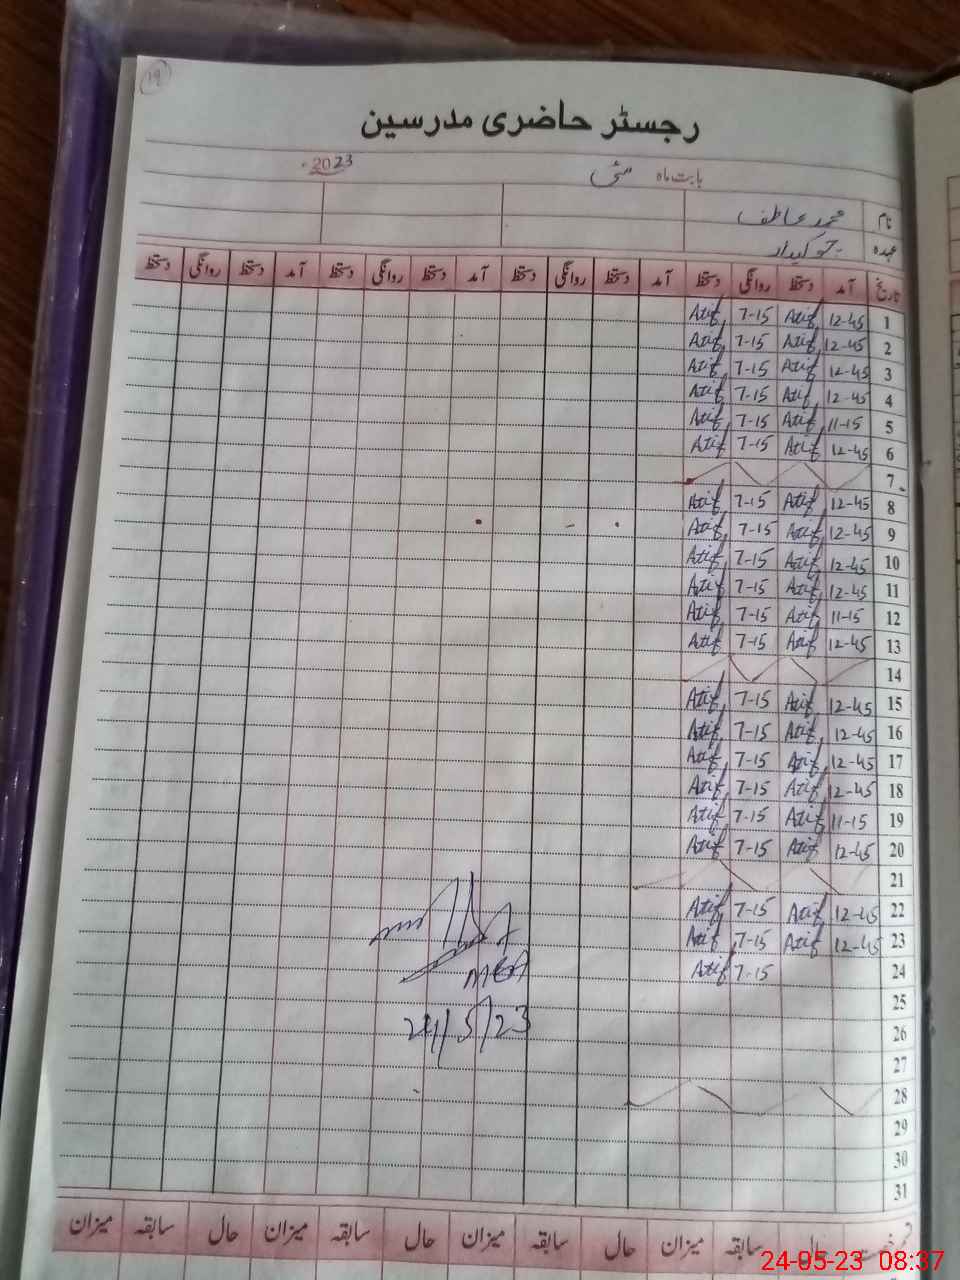 19
رجسٹر حاضری مدرسین
بابت ماہ مئی 2023ء
نام محمد عاطف
عہدہ چوکیدار
تاریخ آمد دستخط روانگی دستخط آمد دستخط روانگی دستخط آمد دستخط روانگی دستخط آمد دستخط روانگی دستخط
1 12-45 Atif 7-15 Atif
2 12-45 Atif 7-15 Atif
3 12-45 Atif 7-15 Atif
4 12-45 Atif 7-15 Atif
5 11-15 Atif 7-15 Atif
6 12-45 Atif 7-15 Atif
7
8 12-45 Atif 7-15 Atif
9 12-45 Atif 7-15 Atif
10 12-45 Atif 7-15 Atif
11 12-45 Atif 7-15 Atif
12 11-15 Atif 7-15 Atif
13 12-45 Atif 7-15 Atif
14
15 12-45 Atif 7-15 Atif
16 12-45 Atif 7-15 Atif
17 12-45 Atif 7-15 Atif
18 12-45 Atif 7-15 Atif
19 11-15 Atif 7-15 Atif
20 12-45 Atif 7-15 Atif
21
22 12-45 Atif 7-15 Atif
23 12-45 Atif 7-15 Atif
24 7-15 Atif
MEA
24/5/23
25
26
27
28
29
30
31
حال سابقہ میزان حال سابقہ میزان حال سابقہ میزان حال سابقہ میزان
24-05-23 08:37